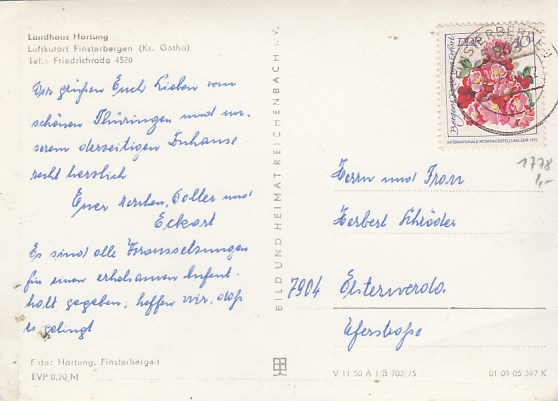 Landhaus Hartung
Luftkurort Finsterbergen (Kr. Gotha)
Tel.: Friedrichroda 4520
Wir grüßen Euch Lieben vom
schönen Thüringen und un-
serem derzeitigen Zuhause
recht herzlich
Euer und
Eckart
Es sind alle Voraussetzungen
für einen erholsamen Aufent-
halt gegeben, hoffen wir, daß
es gelingt
Foto: Hartung, Finsterbergen
EVP 0,20 M
BILD UND HEIMAT REICHENBACH i. V.
DDR 10
INTERNATIONALE ROSENAUSSTELLUNG DDR 1972
FINSTERBERGEN
1778
1,-
Herrn und Frau
Herbert Schröder
7904 Elsterwerda
Uferstraße
V 11 50 A 1/B 702/75
01 09 05 397 K